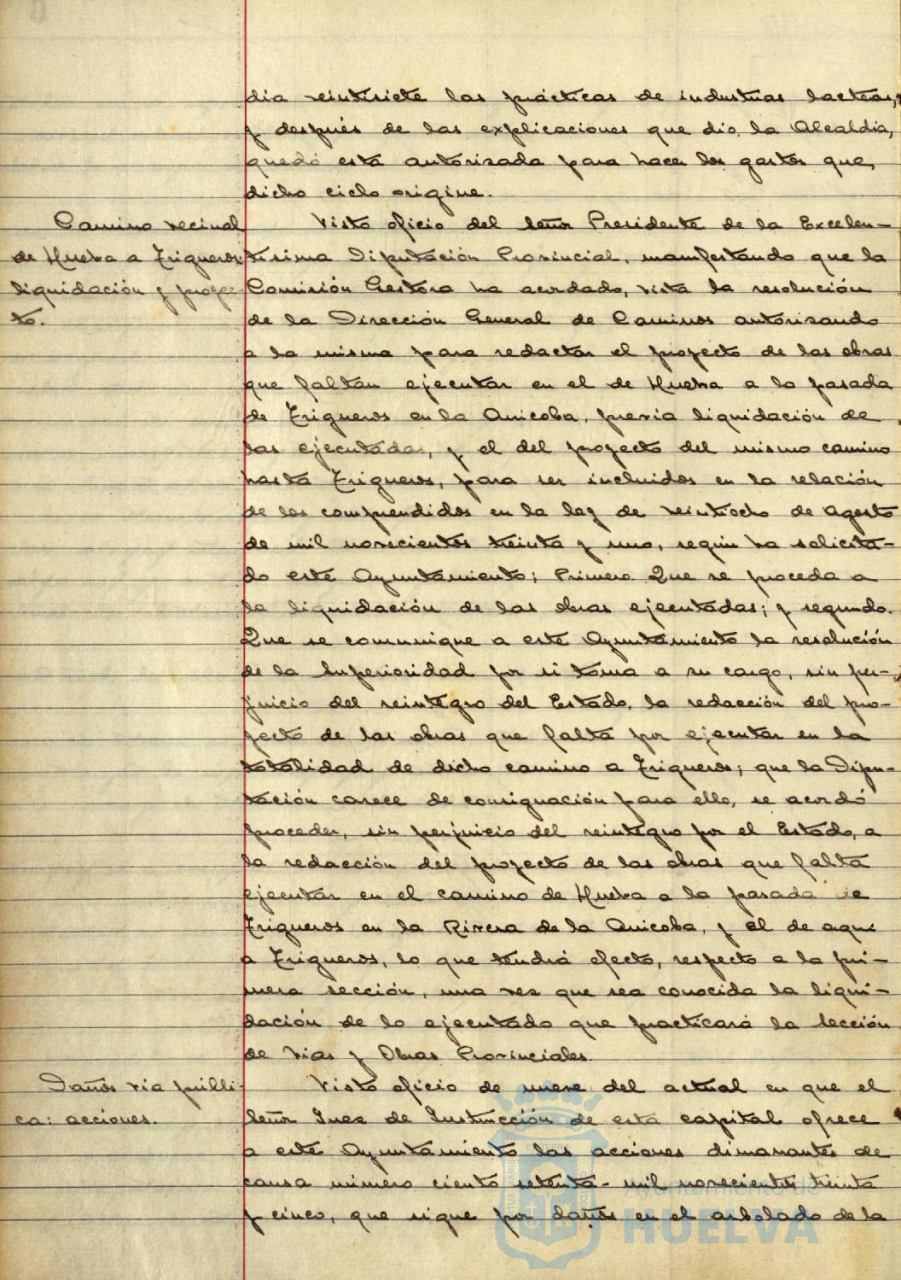 dia veintisiete las prácticas de industrias lacteas,
y después de las explicaciones que dio la Alcaldía,
quedó esta autorizada para hacer los gastos que
dicho ciclo origine.
Camino vecinal
de Huelva a Trigueros:
liquidación y proyec-
to.
Visto oficio del señor Presidente de la Excelen-
tísima Diputación Provincial, manifestando que la
Comisión Gestora ha acordado, vista la resolución
de la Dirección General de Caminos autorizando
a la misma para redactar el proyecto de las obras
que faltan ejecutar en el de Huelva a la pasada
de Trigueros en la Anicoba, previa liquidación de
las ejecutadas, y el del proyecto del mismo camino
hasta Trigueros, para ser incluidos en la relación
de los comprendidos en la ley de veintiocho de Agosto
de mil novecientos treinta y uno, según ha solicita-
do este Ayuntamiento; Primero. Que se proceda a
la liquidación de las obras ejecutadas; y segundo.
Que se comunique a este Ayuntamiento la resolución
de la Superioridad por si toma a su cargo, sin per-
juicio del reintegro del Estado, la redacción del pro-
yecto de las obras que falta por ejecutar en la
totalidad de dicho camino a Trigueros; que la Dipu-
tación carece de consignación para ello, se acordó
proceder, sin perjuicio del reintegro por el Estado, a
la redacción del proyecto de las obras que falta
ejecutar en el camino de Huelva a la pasada de
Trigueros en la Rivera de la Anicoba, y el de aquí
a Trigueros, lo que tendrá efecto, respecto a la pri-
mera sección, una vez que sea conocida la liqui-
dación de lo ejecutado que practicará la Sección
de Vías y Obras Provinciales.
Daños vía públi-
ca: acciones.
Visto oficio de nueve del actual en que el
señor Juez de Instrucción de esta capital ofrece
a este Ayuntamiento las acciones dimanantes de
causa número ciento setenta - mil novecientos treinta
y cinco, que sigue por daños en el arbolado de la
Ayuntamiento de
HUELVA